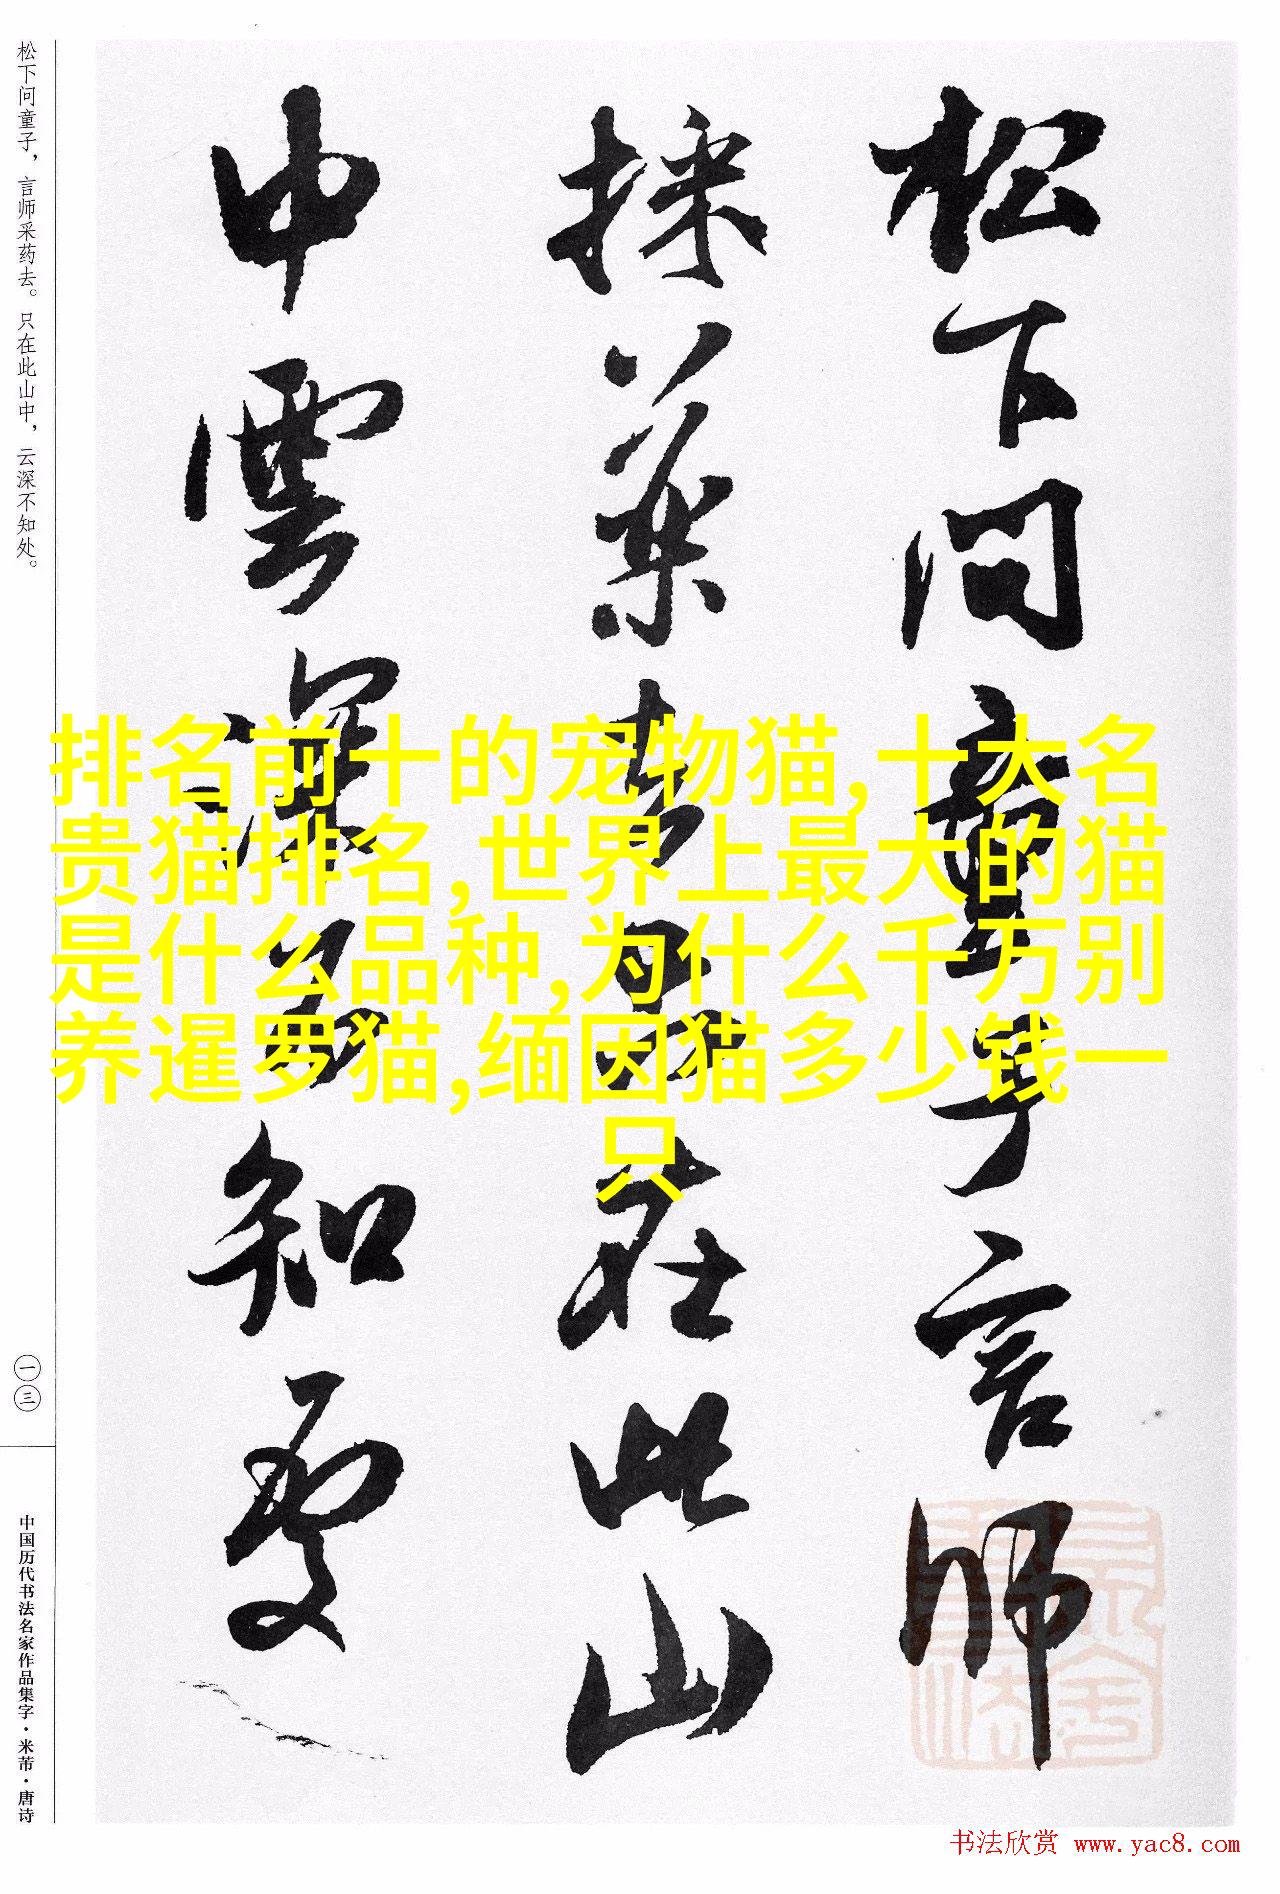 松下问童子，言师采药去。只在此山中，云深不知处。
松下問童子言師
採藥去只在此山
中雲深不知處
排名前十的宠物猫,十大名
贵猫排名,世界上最大的猫
是什么品种,为什么千万别
养暹罗猫,缅因猫多少钱一
只
一三
中国历代书法名家作品集字·米芾·唐诗
书法欣赏 www.yac8.com